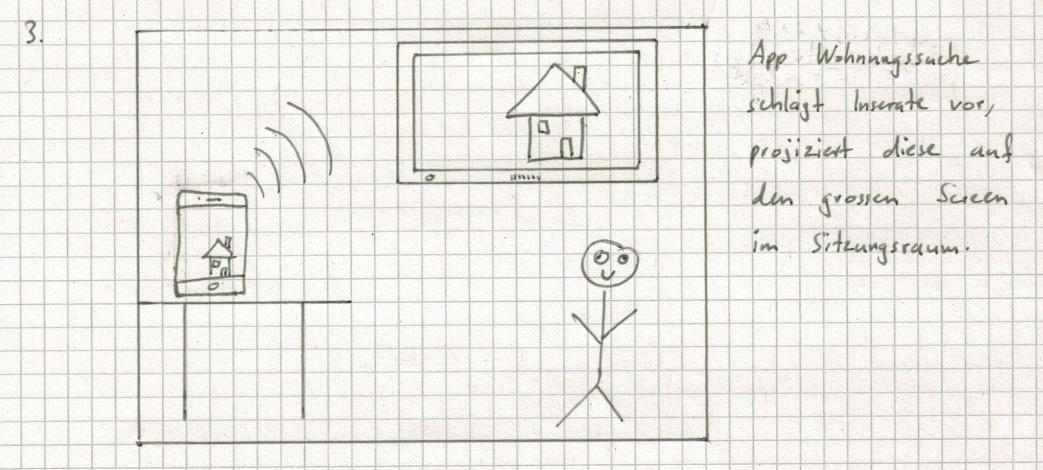 3.
App Wohnungssuche
schlägt Inserate vor,
projiziert diese auf
den grossen Screen
im Sitzungsraum.